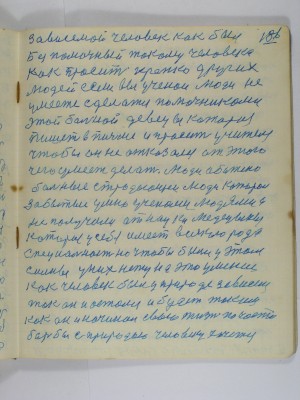 Зависемой человек как был
Беспомочный такому человека
Как просит крепко других
Людей если вы ученои люди не
умеете сделати помочниками
этой болной девецы которая
пишет в писме и просит учителя
чтобы он не отказали от этого
чего умеет делат. Люди обижено
болные страдающие люди которои
забытые умно учеными Людями и
не получило от науки медецыны
которои у себя имеет всякого рода
специалност но чтобы были у этом
силы у них нету на это умение
как человек был у природе зависем
так он и остался и будет таким
как он и начинал свою жизн на чисто
борбы с природою человику хочется